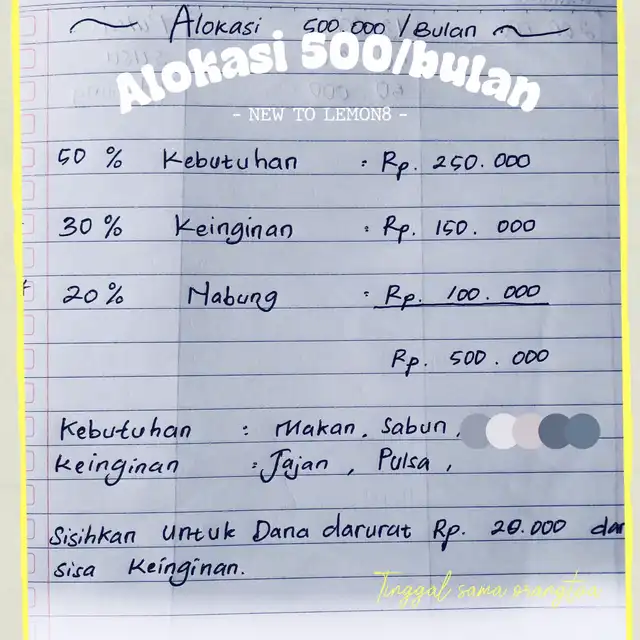 Alokasi 500.000 / Bulan
Alokasi 500/bulan
- NEW TO LEMON8 -
50 % Kebutuhan : Rp. 250.000
30 % Keinginan : Rp. 150.000
20 % Nabung : Rp. 100.000
Rp. 500.000
Kebutuhan : Makan, Sabun,
Keinginan : Jajan, Pulsa,
Sisihkan Untuk Dana darurat Rp. 20.000 dar
sisa Keinginan.
Tinggal sama orangtua